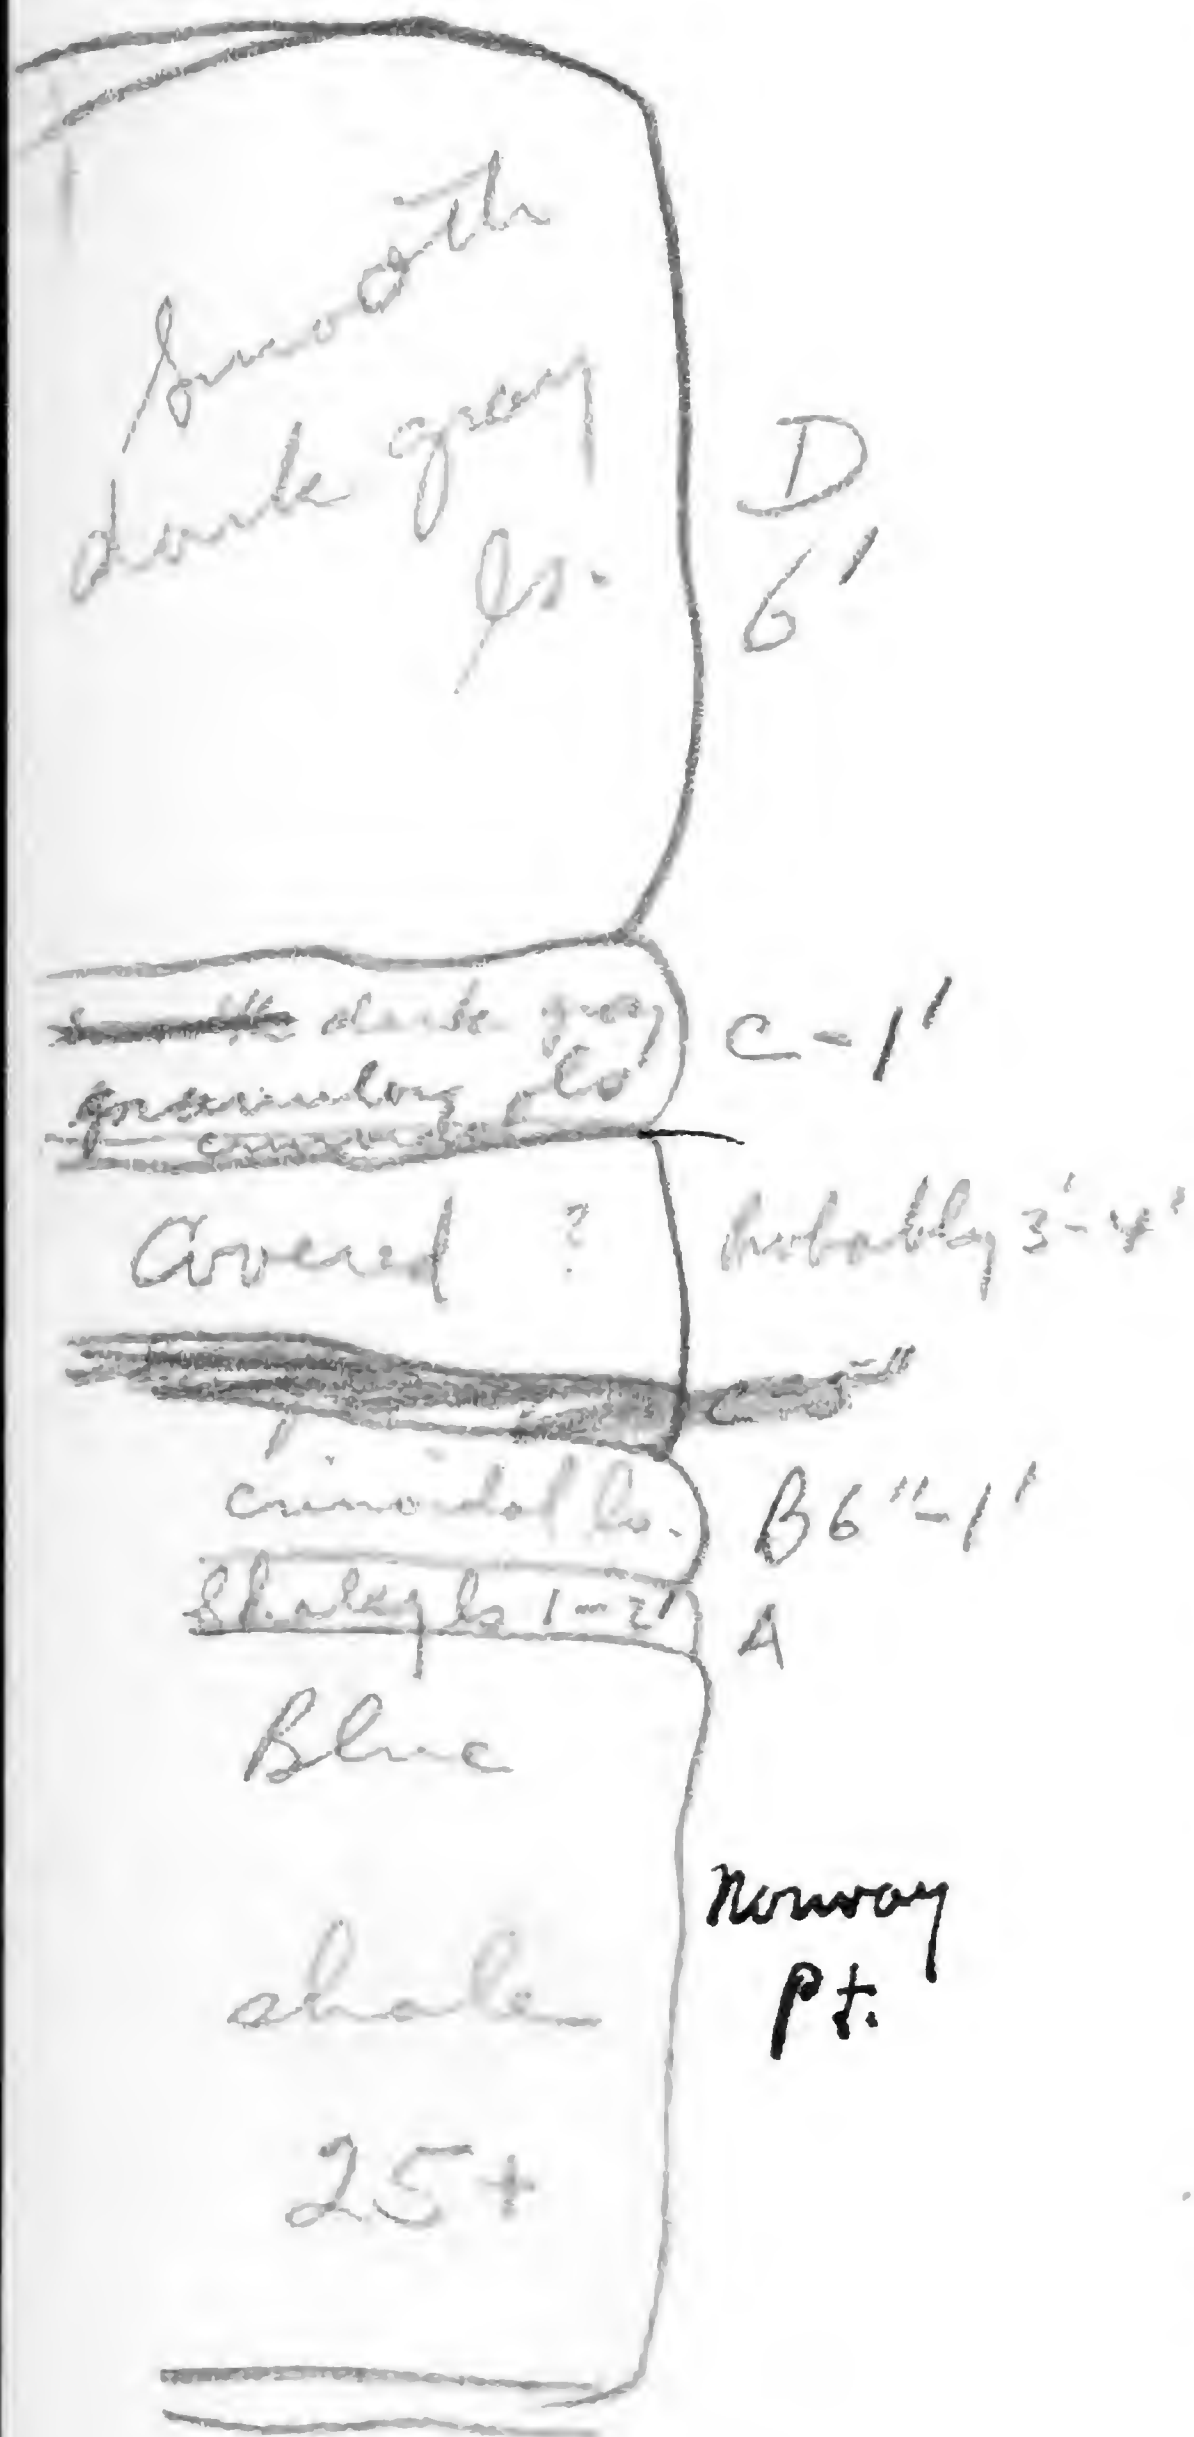 Smooth
dark gray
ls.
D
6'
dark gray
C - 1'
ls
Covered ?
probably 3'-4'
crinoidal ls.
B 6" - 1'
Shaley ls 1-2'
A
Blue
shale
25+
Norway
Pt.